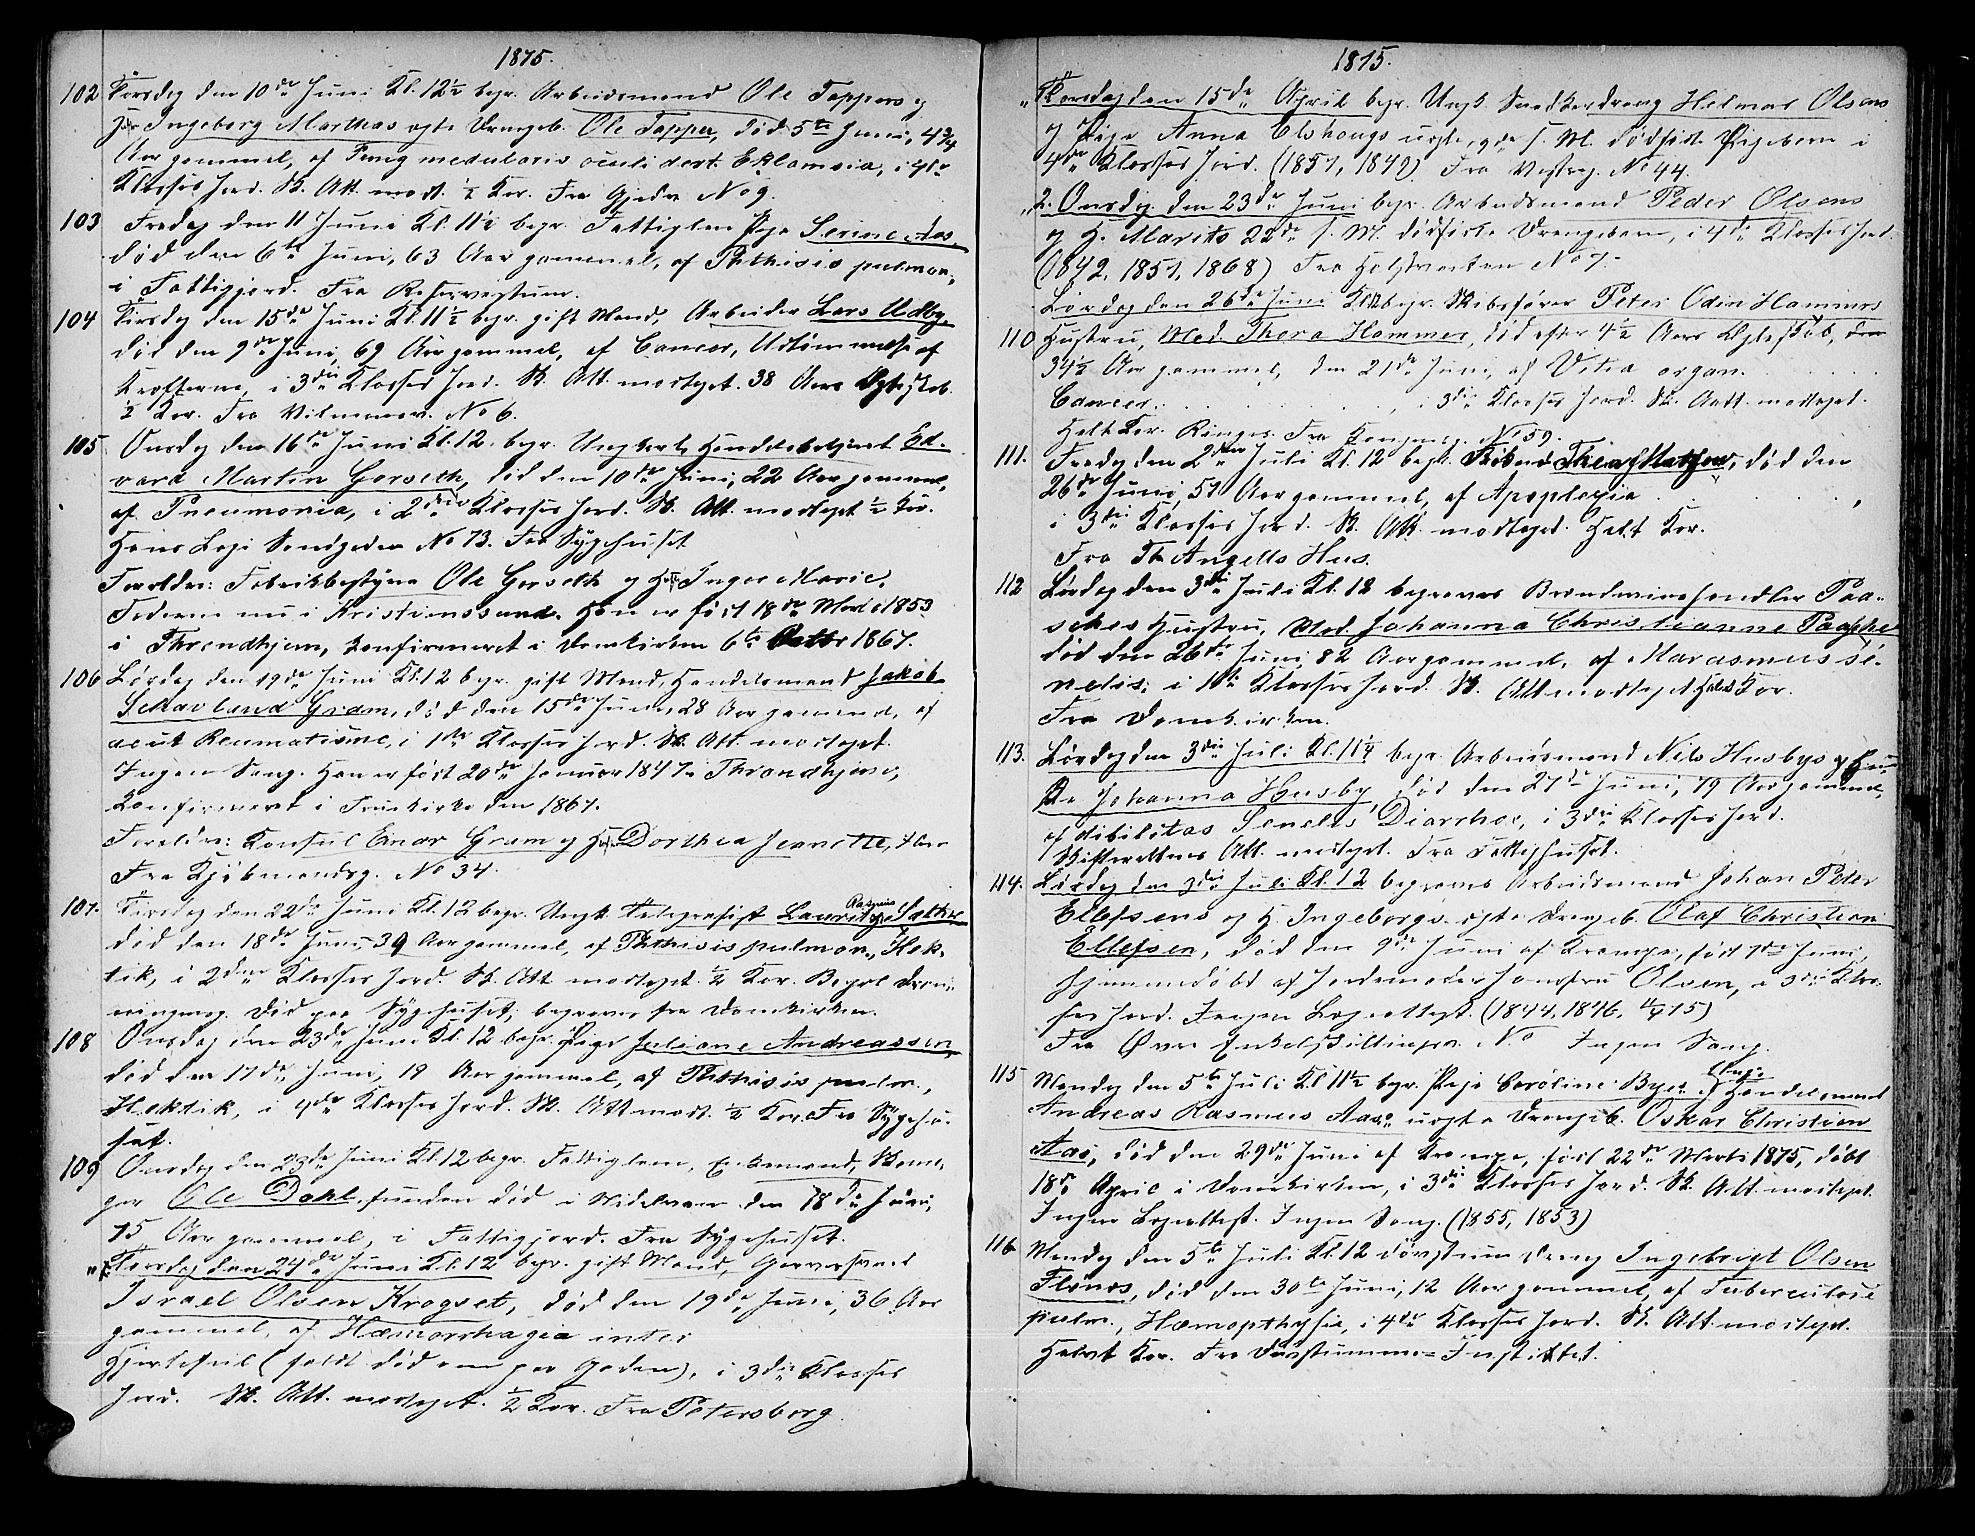 1875.
102 Torsdag den 10de Juni Kl. 12½ begr. Arbeidsmand Ole Tappers og
H. Ingeborg Marthas ægte Drengeb. Ole Tapper, død 5te Juni, 4¾
Aar gammel, af Fung medularis oculi dext. Eklamsia, i 4de
Klasses Jord. Sk. Att. modt. ½ Kor. Fra No 9.
103 Fredag den 11 Juni Kl. 11½ begr. Fattiglem Pige Serine Aas,
død den 6te Juni, 63 Aar gammel, af Phthisis pulmon.,
i Fattigjord. Fra
104 Tirsdag den 15de Juni Kl. 11½ begr. gift Mand, Arbeider Lars Udby,
død den 9de Juni, 69 Aar gammel, af Cancer, Udtømmelse af
Kræfterne, i 3die Klasses Jord. Sk. Att. modtaget. 38 Aars Ægteskab.
½ Kor. Fra No 6.
105 Onsdag den 16de Juni Kl. 12. begr. Ungkarl Handelsbetjent Ed-
vard Martin Gorseth, død den 10de Juni, 22 Aar gammel,
af Pneumonia, i 2den Klasses Jord. Sk. Att. modtaget ½ Kor.
Hans Logi Sandgaden No 73. Fra Sygehuset
Forældre: Fabrikbestyrer Ole Gorseth og H. Inger Marie,
Faderen nu i Kristianssund. Han er født 18de 1853
i Throndhjem, konfirmeret i Domkirken 6te Octbr 1867.
106 Lørdag den 19de Juni Kl. 12 begr. gift Mand, Handelsmand Jakob
Schavland Gram, død den 15de Juni, 28 Aar gammel, af
acut Reumatisme, i 1ste Klasses Jord. Sk. Att. modtaget.
Ingen Sang. Han er født 20de Januar 1847 i Throndhjem,
Konfirmeret i Fruekirke den 1861.
Forældre: Konsul Einar Gram og H. Dorthea Jeanette,
Fra Kjøbmandsg. No 34.
107. Tirsdag den 22de Juni Kl. 12 begr. Ungk. Telegrafist Lauritz Rasmus Sather
død den 18de Juni, 39 Aar gammel, af Phthisis pulmon., Hek-
tik, i 2den Klasses Jord. Sk. Att modtaget ½ Kor. Bopæl Dron-
ningensg. Død paa Sygehuset, begraves fra Domkirken.
108 Onsdag den 23de Juni Kl. 12 begr. Pige Juliane Andreassen,
død den 17de Juni, 19 Aar gammel, af Phthisis pulm.,
Hektik, i 4de Klasses Jord. Sk. Att modt. ½ Kor. Fra Sygehu-
set.
109 Onsdag den 23de Juni Kl. 12 begr. Fattiglem, Enkemand,
Ole Dahl, funden død i Nidelven den 18de Juni,
75 Aar gammel, i Fattigjord. Fra Sygehuset.
Torsdag den 24de Juni Kl. 12 begr. gift Mand, Garversvend
Israel Olsen Krogset, død den 19de Juni, 36 Aar
gammel, af Hæmorrhagia inter
Hjertefeil (faldt død om paa Gaden), i 3die Klasses
Jord. Sk. Att. modtaget. ½ Kor. Fra Petersborg.
1875.
Torsdag den 15de April begr. Ungk. Olsens
og Pige Anna Elshaugs uægte, 9de s. M. dødfødt Pigebarn i
4de Klasses Jord. (1851, 1849) Fra No 44.
2. Onsdag den 23de Juni begr. Arbeidsmand Peder Olsens
og H. Marits 22de s. M. dødfødte Drengebarn, i 4de Klasses Jord.
(1842, 1851, 1868) Fra No 7.
Lørdag den 26de Juni begr. Skibsfører Peter Odin Hammers
110 Hustru, Mad. Thora Hammer, død efter 4½ Aars Ægteskab,
34½ Aar gammel, den 21de Juni, af Vitia organ.
Cancer. , i 3die Klasses Jord. Sk. Att. modtaget.
Halv Kor. Ringes. Fra No 59.
111. Fredag den 2den Juli Kl. 12 begr. Thea død den
26de Juni, 51 Aar gammel, af Apoplexia
i 3die Klasses Jord. Sk. Att. modtaget. Halvt Kor.
Fra Th. Angells Hus.
112 Lørdag den 3die Juli Kl. 12 begraves Brændevinshandler Paa-
sches Hustru, Mad. Johanna Christianne Paasche
død den 26de Juni, 82 Aar gammel, af Marasmus se-
nilis, i 1ste Klasses Jord. Sk. Att modtaget Halvt Kor.
Fra Domkirken.
113. Lørdag den 3die Juli Kl. 11½ begr. Arbeidsmand Nils Husbys
Johanna Husby, død den 27de Juni, 79 Aar gammel,
af dibilitas Senelis Diarrhoe, i 3die Klasses Jord.
Skifterettens Att. modtaget. Fra Fattighuset.
114. Lørdag den 3die Juli Kl. 12 begraves Arbeidsmand Johan Peter
Ellefsens og H. Ingeborgs ægte Drengeb. Olaf Christian
Ellefsen, død den 9de Juni af Krampe, født 7de Juni,
hjemmedøbt af Jordemoder Jomfru Olsen, i 3die Klas-
ses Jord. Ingen Lægeattest. (1844, 1846,
Fra Øvre Enkeltskillingsv. No Ingen Sang.
115 Mandag den 5te Juli Kl 11½ begr. Pige Caroline Byes og Handelsmand
Andreas Rasmus Aas's uægte Drengeb. Oskar Christian
Aas, død den 29de Juni af Krampe, født 22de Marts 1875, døbt
18de April i Domkirken, i 3die Klasses Jord. Sk. Att. modtaget.
Ingen Lægeattest. Ingen Sang. (1855, 1853)
116 Mandag den 5te Juli Kl. 12 døvstum Dreng Ingebrigt Olsen
Flønes, død den 30te Juni, 12 Aar gammel, af Tuberculose
pulm., Hæmopthysie, i 4de Klasses Jord. Sk. Att modtaget.
Halvt Kor. Fra Døvstumme-Institutet.